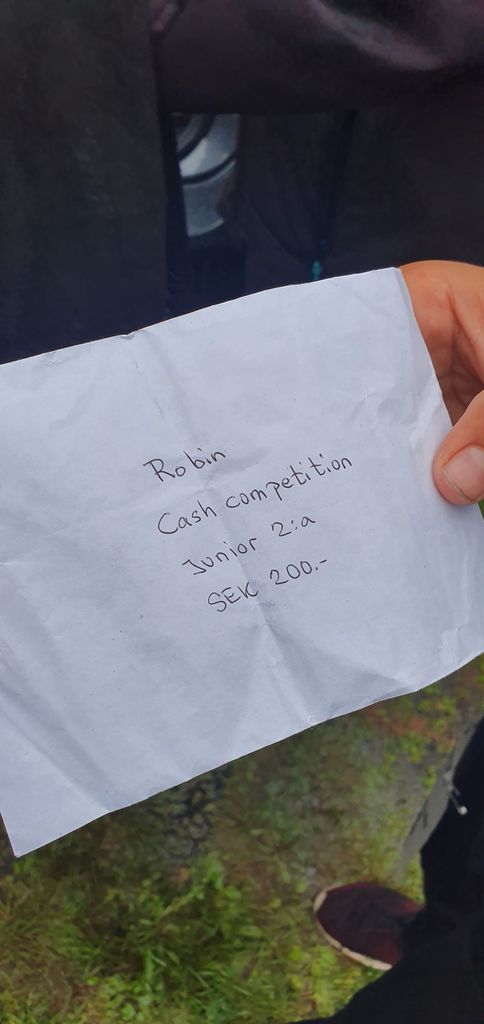 Robin
Cash competition
Junior 2:a
SEK 200.-